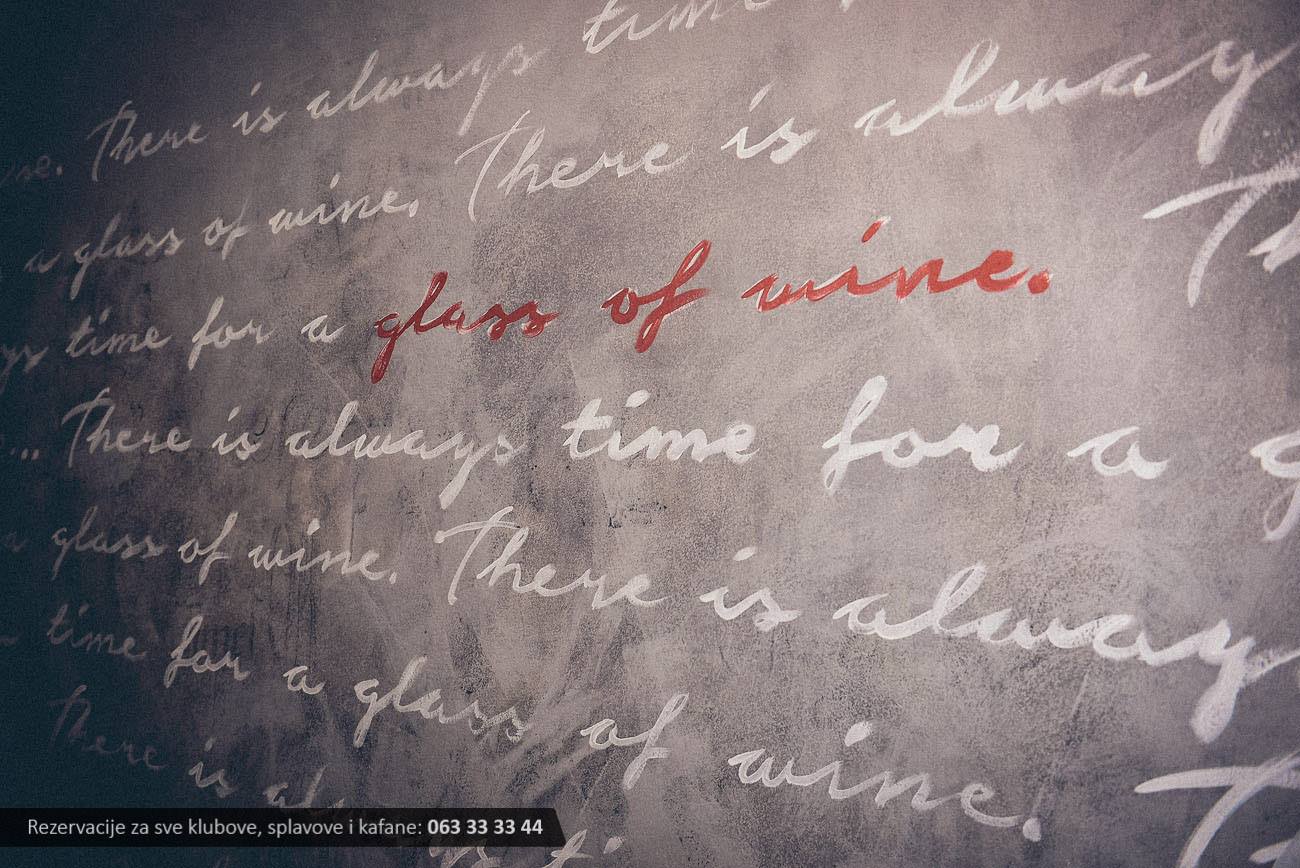 time
There is always
There is alway
a glass of wine.
Th
time for a glass of wine.
There is always time for a g
a glass of wine.
There is alway
time for a glass of wine.
Th
There is al
ti
Rezervacije za sve klubove, splavove i kafane: 063 33 33 44